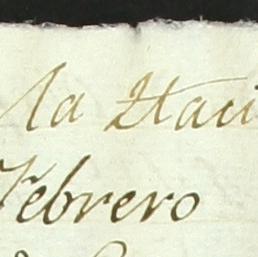 la Haci
Febrero